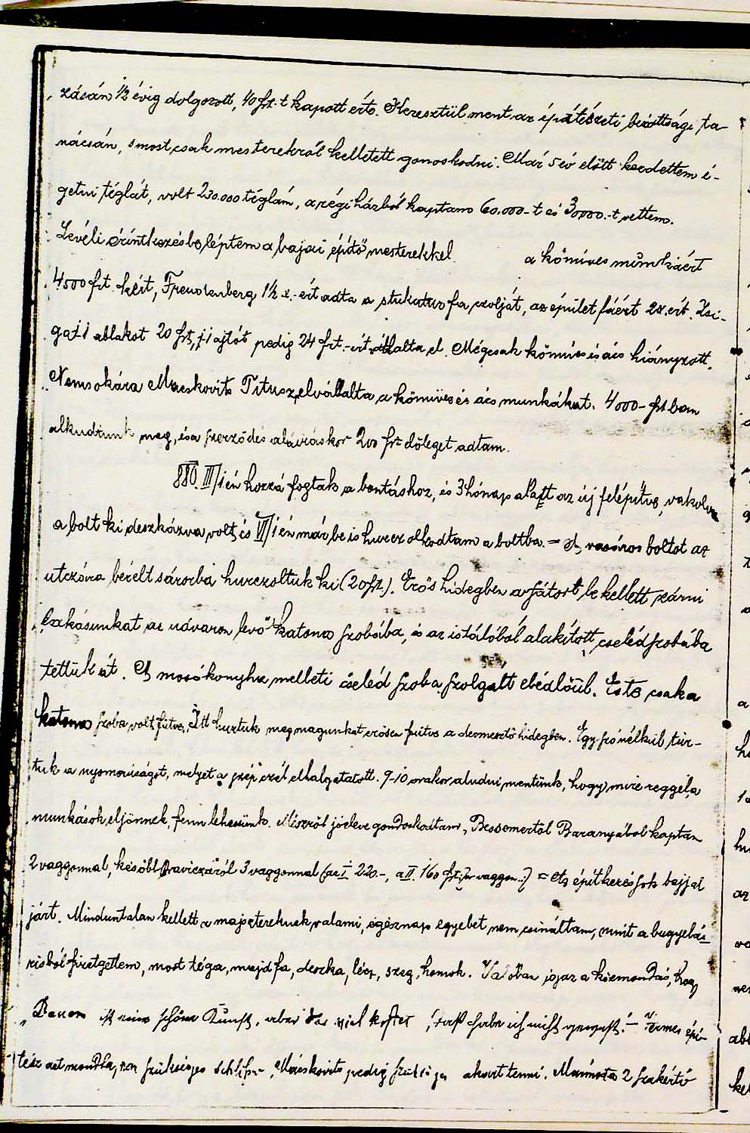 zásán ½ évig dolgozott, 40 frt-t kapott érte. Keresztül ment az építészeti bizottsági ta-
nácsán, s most csak mesterekről kelletett gondoskodni. Már 5 év előtt kezdettem é-
getni téglát, volt 230.000 téglám, a régi házból kaptam 60.000-t és 30000-t vettem.
Levéli érintkezésbe léptem a bajai építő mesterekkel a kőmives munkáért
4000 frt. kért, Freudenberg 1½ x.-ért adta a stukatur fa zsolját, az épület fáért 28.ért. Zsi-
gaji ablakot 20 frt, ji ajtót pedig 24 frt.-ért vállalta el. Mégcsak kőmives és ács hiányzott.
Nemsokára Máskovits Titusz elvállalta a kőmives és ács munkákat. 4000-frtban
alkudtunk meg, és a szerződés aláíráskor 200 frt előleget adtam.
880. III/1 én hozzá fogtak a bontáshoz, és 3 hónap alatt az új felépítve, vakolva
a bolt ki deszkázva volt, és VI/1 én már be is hurczolkodtam a boltba. = A vasáros boltot az
utczára bérelt sátorba hurczoltuk ki (20 frt). Erős hidegben a sátort be kellett zárni
Lakásunkat az udvaron levő katona szobába, és az istálóból alakított cseléd szobába
tettük át. A mosókonyha melleti cseléd szoba szolgált ebédlőül. Este csak a
katona szoba volt fűtve, Itt huztuk meg magunkat erősen fűtve a dermesztő hidegben. Egy szó nélkül tűr-
tük a nyomoruságot, melyet a szép czél elhalgatatott. 9-10 órakor aludni mentünk, hogy mire reggel a
munkások eljönnek, fenn lehessünk. Mészről jó eleve gondoskodtam, Bessemertől Baranyából kaptam
2 vaggonnal, később 3 vaggonnal (az I 220-, a II. 160 frt per vaggon.) = Az építkezés sok bajjal
járt. Minduntalan kellett a majsztereknek valami, egész nap egyebet nem csináltam, mint a bugyelá-
risból fizetgettem, most tégla, majd fa, deszka, lécz, szeg, homok. Valóban igaz a közmondás, hogy
„Bauen ist eine schöne Kunst, aber das viel kostet, das habe ich nicht gewusst.“ – Vermes épí-
tész azt mondta, nem szükséges, Máskovits pedig akart tenni. 2 szakértő